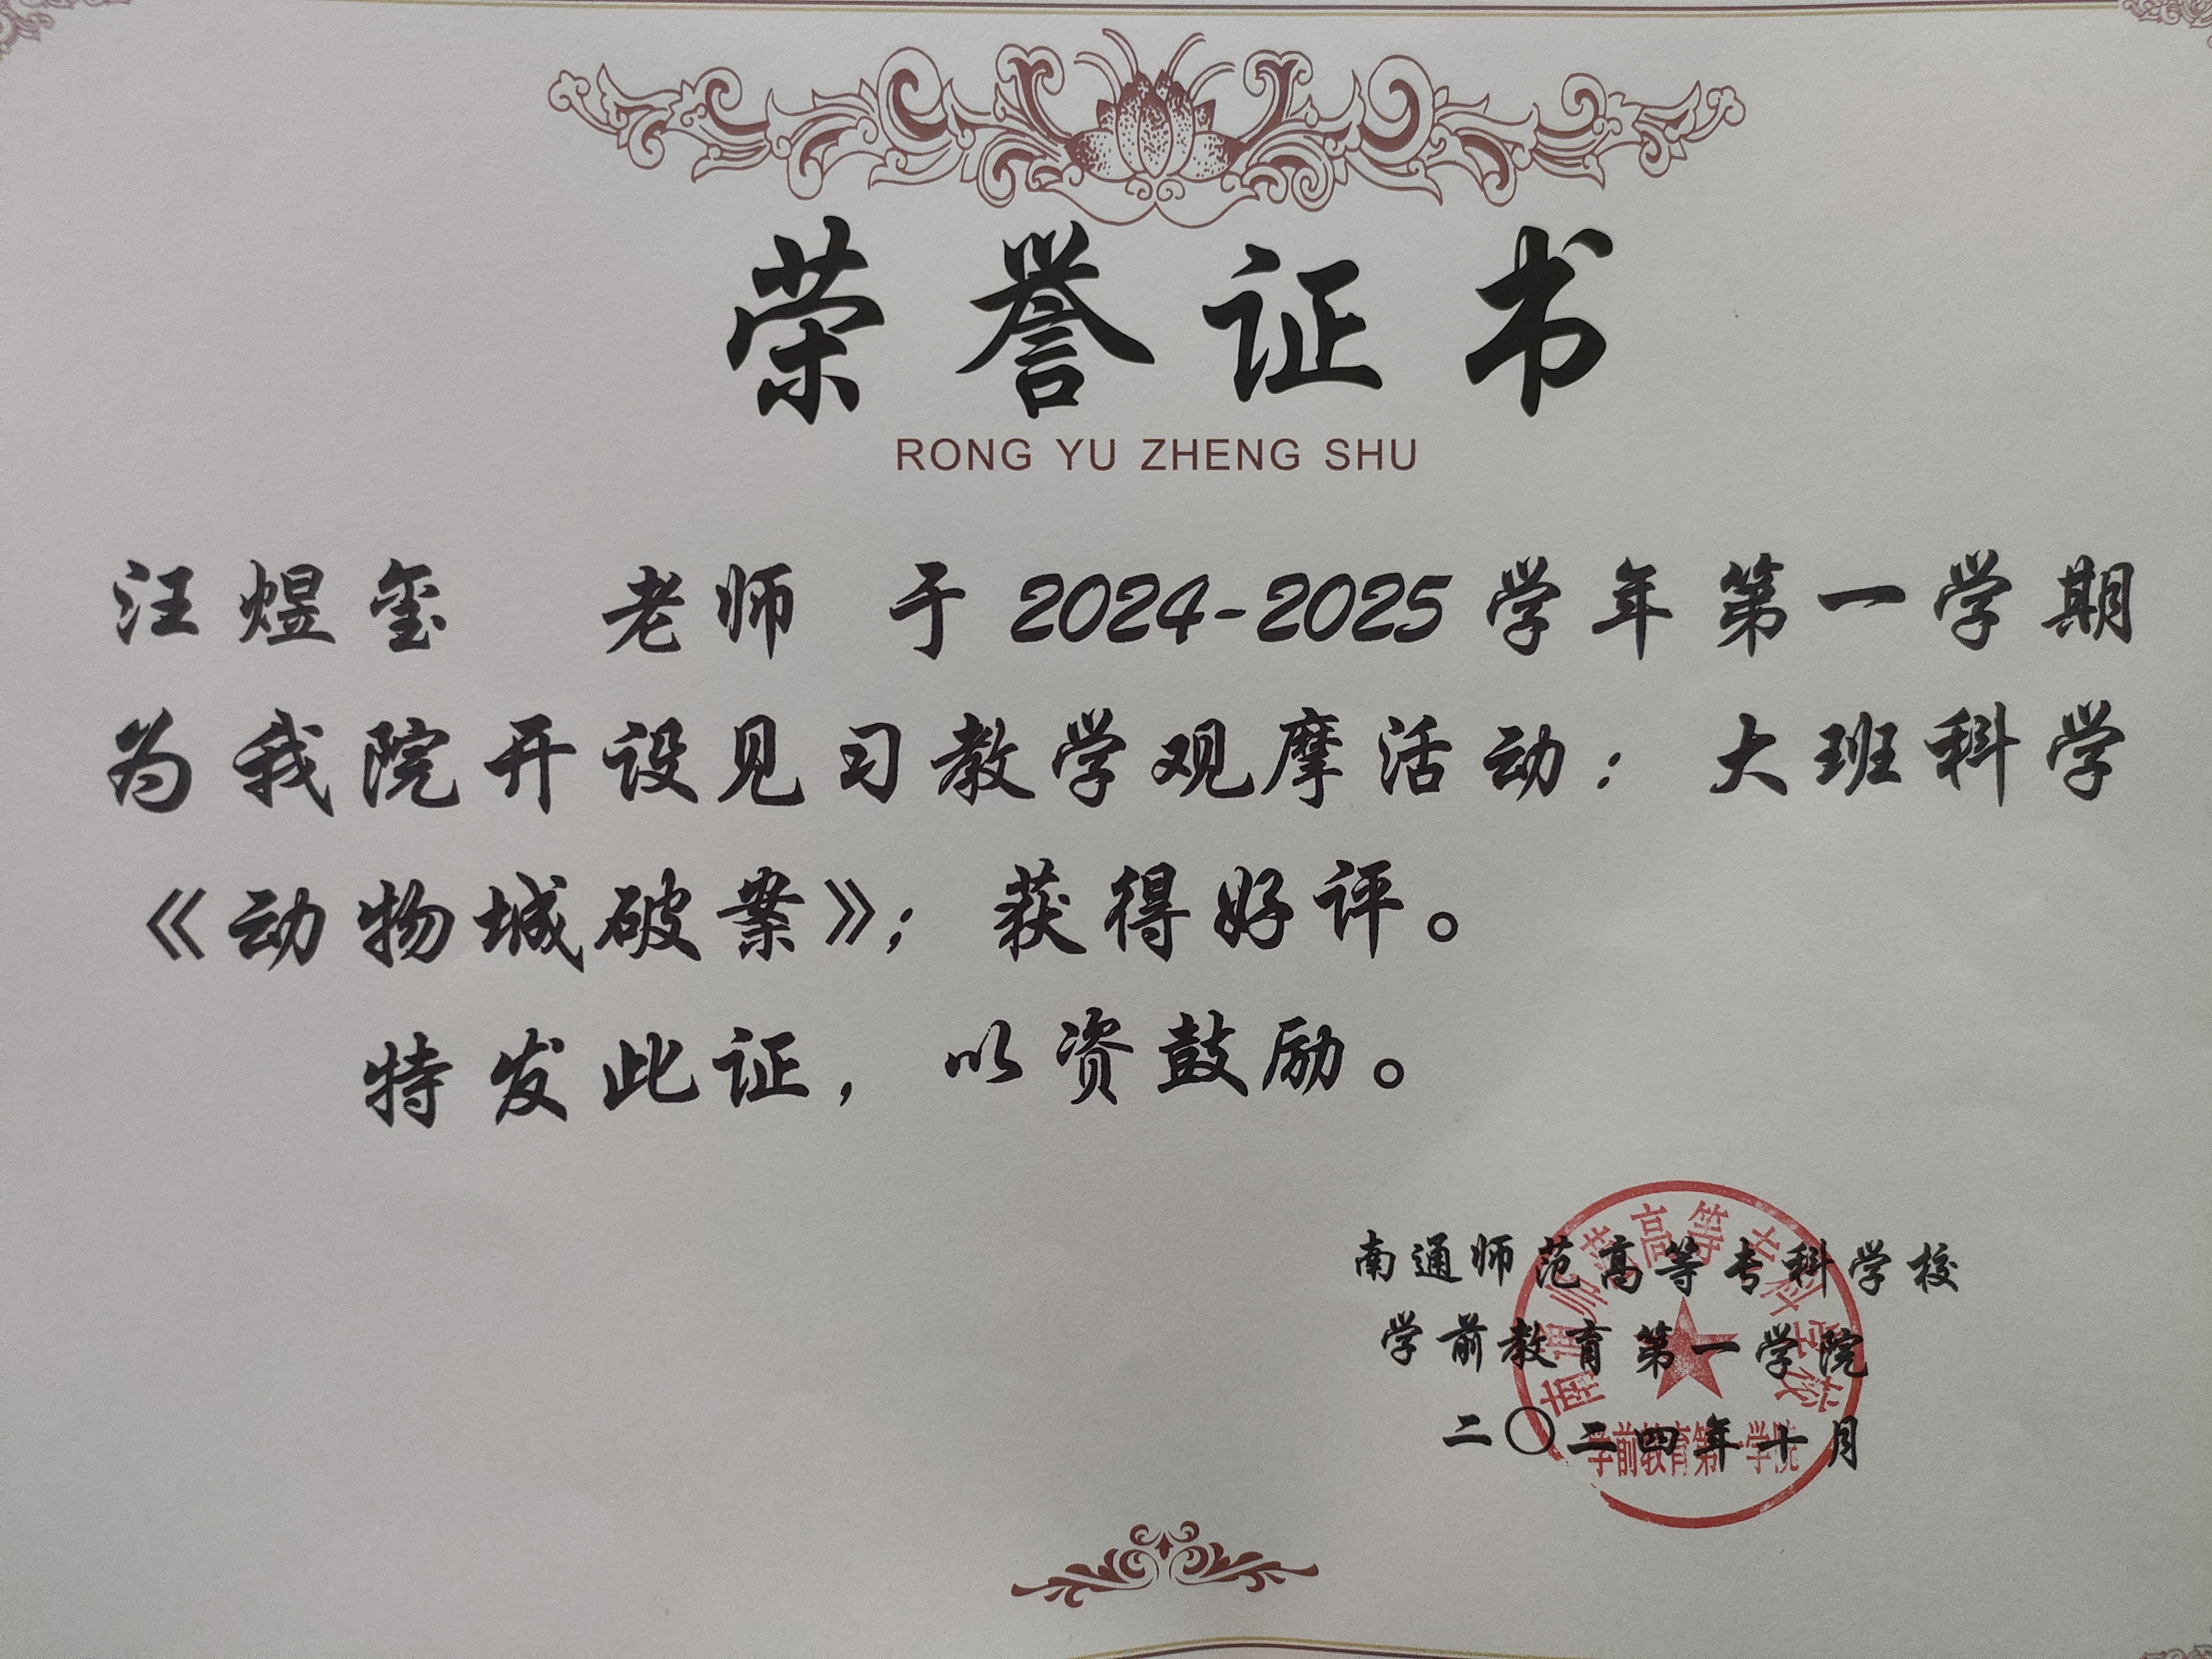 荣誉证书
RONG YU ZHENG SHU
汪煜玺 老师 于2024-2025学年第一学期
为我院开设见习教学观摩活动：大班科学
《动物城破案》；获得好评。
特发此证，以资鼓励。
南通师范高等专科学校
学前教育第一学院
二〇二四年十月
南通师范高等专科学校
学前教育第一学院